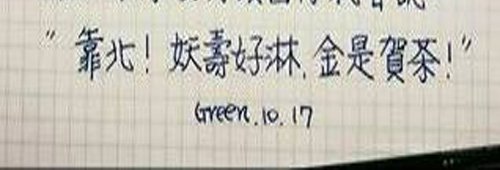 "靠北！妖壽好淋,金是賀茶！"
Green.10.17